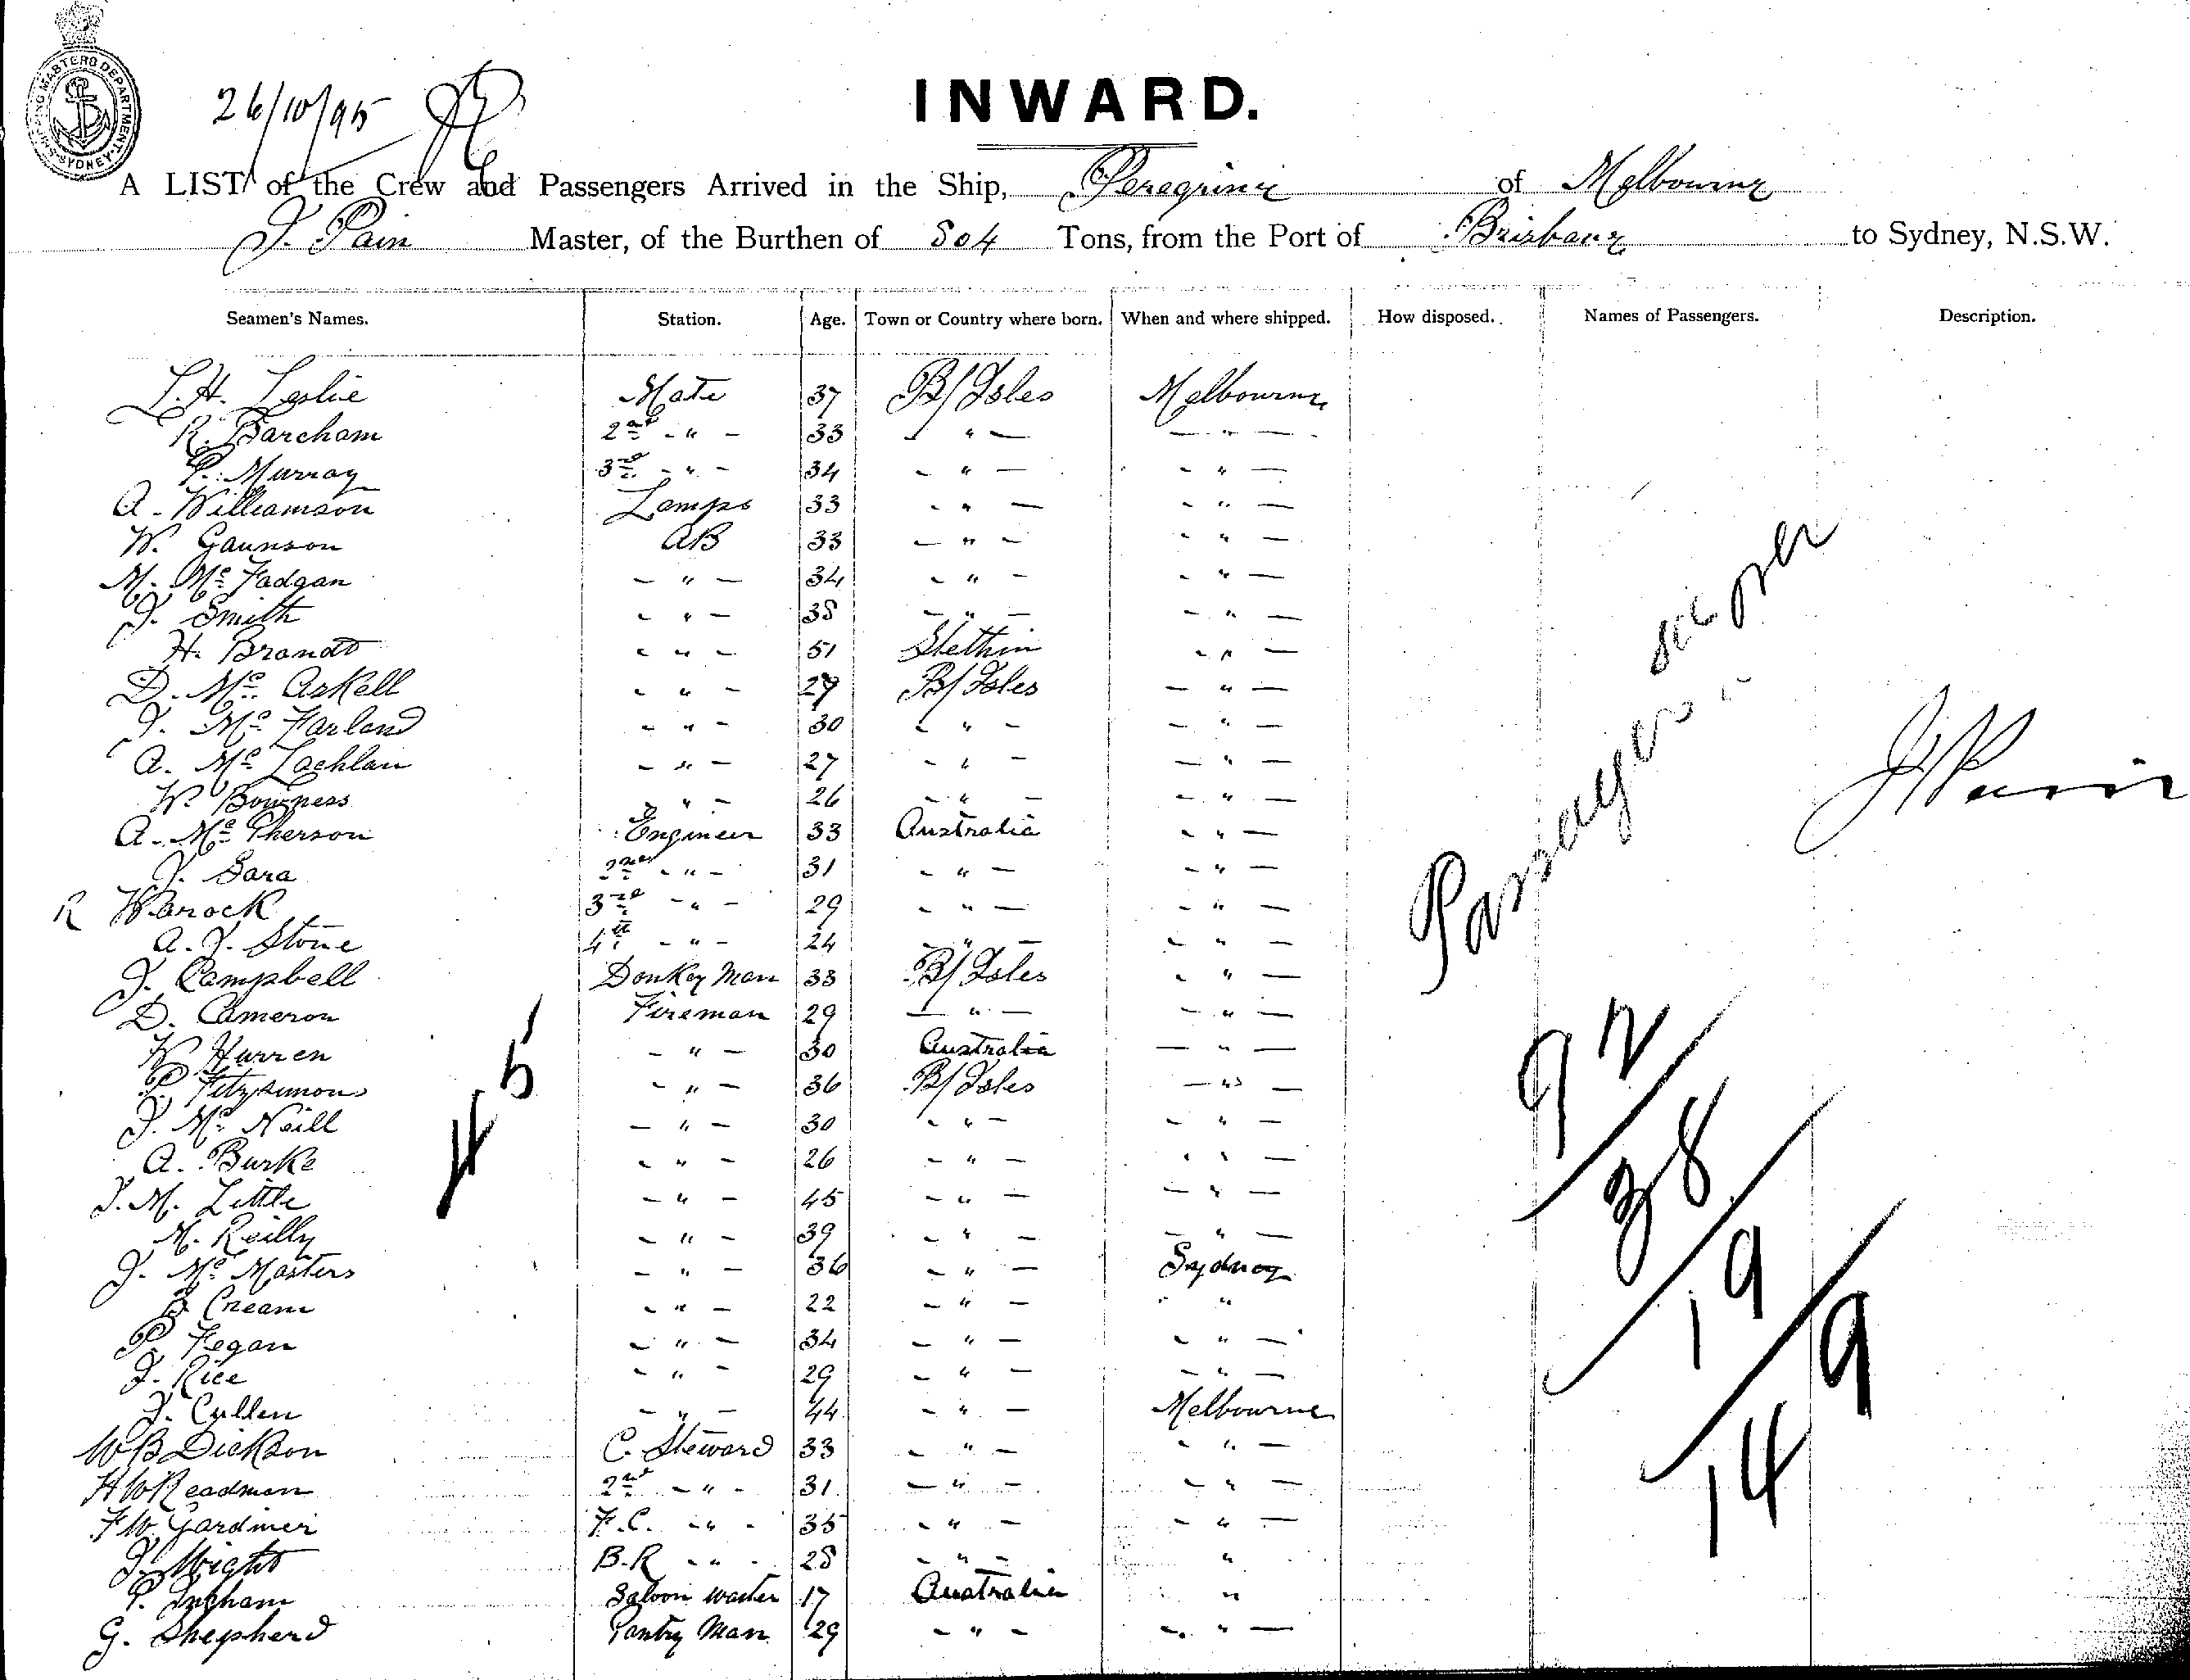 SHIPPING MASTERS DEPARTMENT. SYDNEY
26/10/95
INWARD.
A LIST of the Crew and Passengers Arrived in the Ship, Peregrine of Melbourne
J. Pain Master, of the Burthen of 804 Tons, from the Port of Brisbane to Sydney, N.S.W.
Seamen's Names. Station. Age. Town or Country where born. When and where shipped. How disposed. Names of Passengers. Description.
L. H. Leslie Mate 37 B/Isles Melbourne
R. Barcham 2nd - " - 33 - " - - " -
P. Murray 3rd - " - 34 - " - - " -
A. Williamson Lamps 33 - " - - " -
W. Gaunson AB 33 - " - - " -
M. McFadgan - " - 34 - " - - " -
J. Smith - " - 38 - " - - " -
H. Brandt - " - 51 Stethin - " -
D. McAskell - " - 29 B/Isles - " -
J. McFarland - " - 30 - " - - " -
A. McLachlan - " - 27 - " - - " -
W. Bowness - " - 26 - " - - " -
A. McPherson Engineer 33 Australia - " -
J. Sara 2nd - " - 31 - " - - " -
R Warock 3rd - " - 29 - " - - " -
A. J. Stone 4th - " - 24 - " - - " -
J. Campbell Donkey Man 33 B/Isles - " -
D. Cameron Fireman 29 - " - - " -
W Hurren - " - 30 Australia - " -
P. Fitzsimons - " - 36 B/Isles - " -
J. McNeill - " - 30 - " - - " -
A. Burke - " - 26 - " - - " -
J. M. Little - " - 45 - " - - " -
M. Reilly - " - 39 - " - - " -
J. McMasters - " - 36 - " - Sydney
B Cream - " - 22 - " - "
P. Fegan - " - 34 - " - - " -
J. Rice - " - 29 - " - - " -
J. Cullen - " - 44 - " - Melbourne
W B Dickson C. Steward 33 - " - - " -
H W Readman 2nd - " - 31 - " - - " -
F W. Gardiner F.C. - " - 35 - " - - " -
J. Wright B.R - " - 28 - " - "
P. Ingham Saloon waiter 17 Australia "
G. Shepherd Pantry Man 29 - " - - " -
45
Passengers
J Pain
92/38/19/149